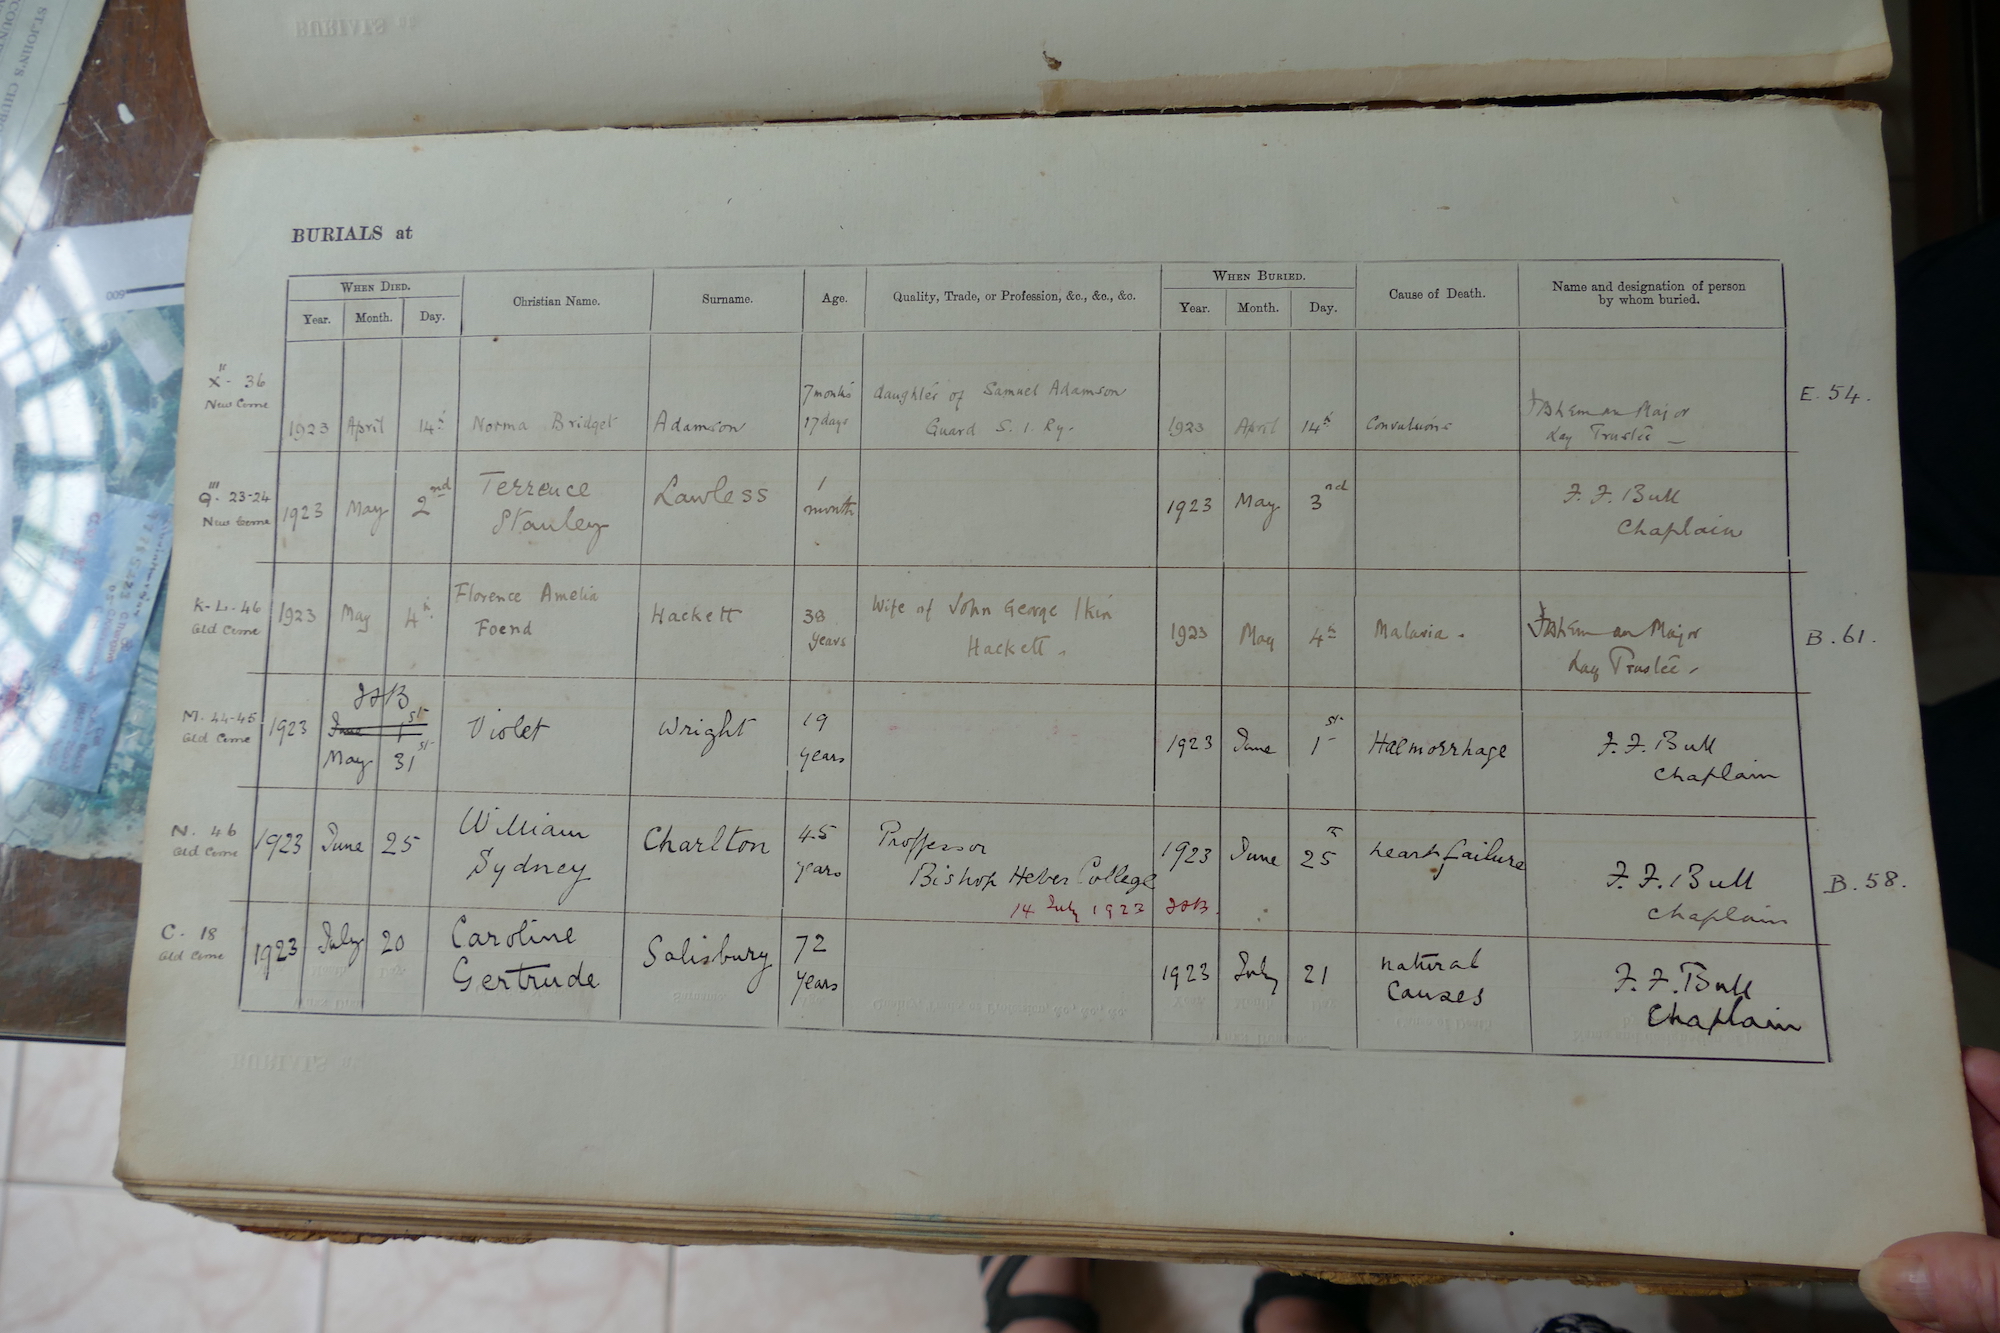 BURIALS at
WHEN DIED.
Year. Month. Day.
Christian Name.
Surname.
Age.
Quality, Trade, or Profession, &c., &c., &c.
WHEN BURIED.
Year. Month. Day.
Cause of Death.
Name and designation of person
by whom buried.
X" - 36
New Ceme
1923 April 14th Norma Bridget Adamson
7 months
17 days
daughter of Samuel Adamson
Guard S. I. Ry.
1923 April 14th Convulsions
Major
Lay Trustee
E. 54.
Q"'. 23-24
New Ceme
1923 May 2nd
Terrence
Stanley
Lawless
1
month
1923 May 3rd
F. F. Bull
Chaplain
K-L-46
Old Ceme
1923 May 4th
Florence Amelia
Foend
Hackett
38
years
Wife of John George Ikin
Hackett.
1923 May 4th Malaria.
Major
Lay Trustee.
B. 61.
M. 44-45
Old Ceme
1923
June 1st
May 31st
Violet
Wright
19
years
1923 June 1st Haemorrhage
F. F. Bull
Chaplain
N. 46
Old Ceme
1923 June 25
William
Sydney
Charlton
45
years
Proffessor
Bishop Heber College
14 July 1923
1923 June 25th heart failure
F. F. Bull
Chaplain
B. 58.
C - 18
Old Ceme
1923 July 20
Caroline
Gertrude
Salisbury
72
years
1923 July 21
natural
causes
F. F. Bull
Chaplain
ST. JOHN'S CHURC
600